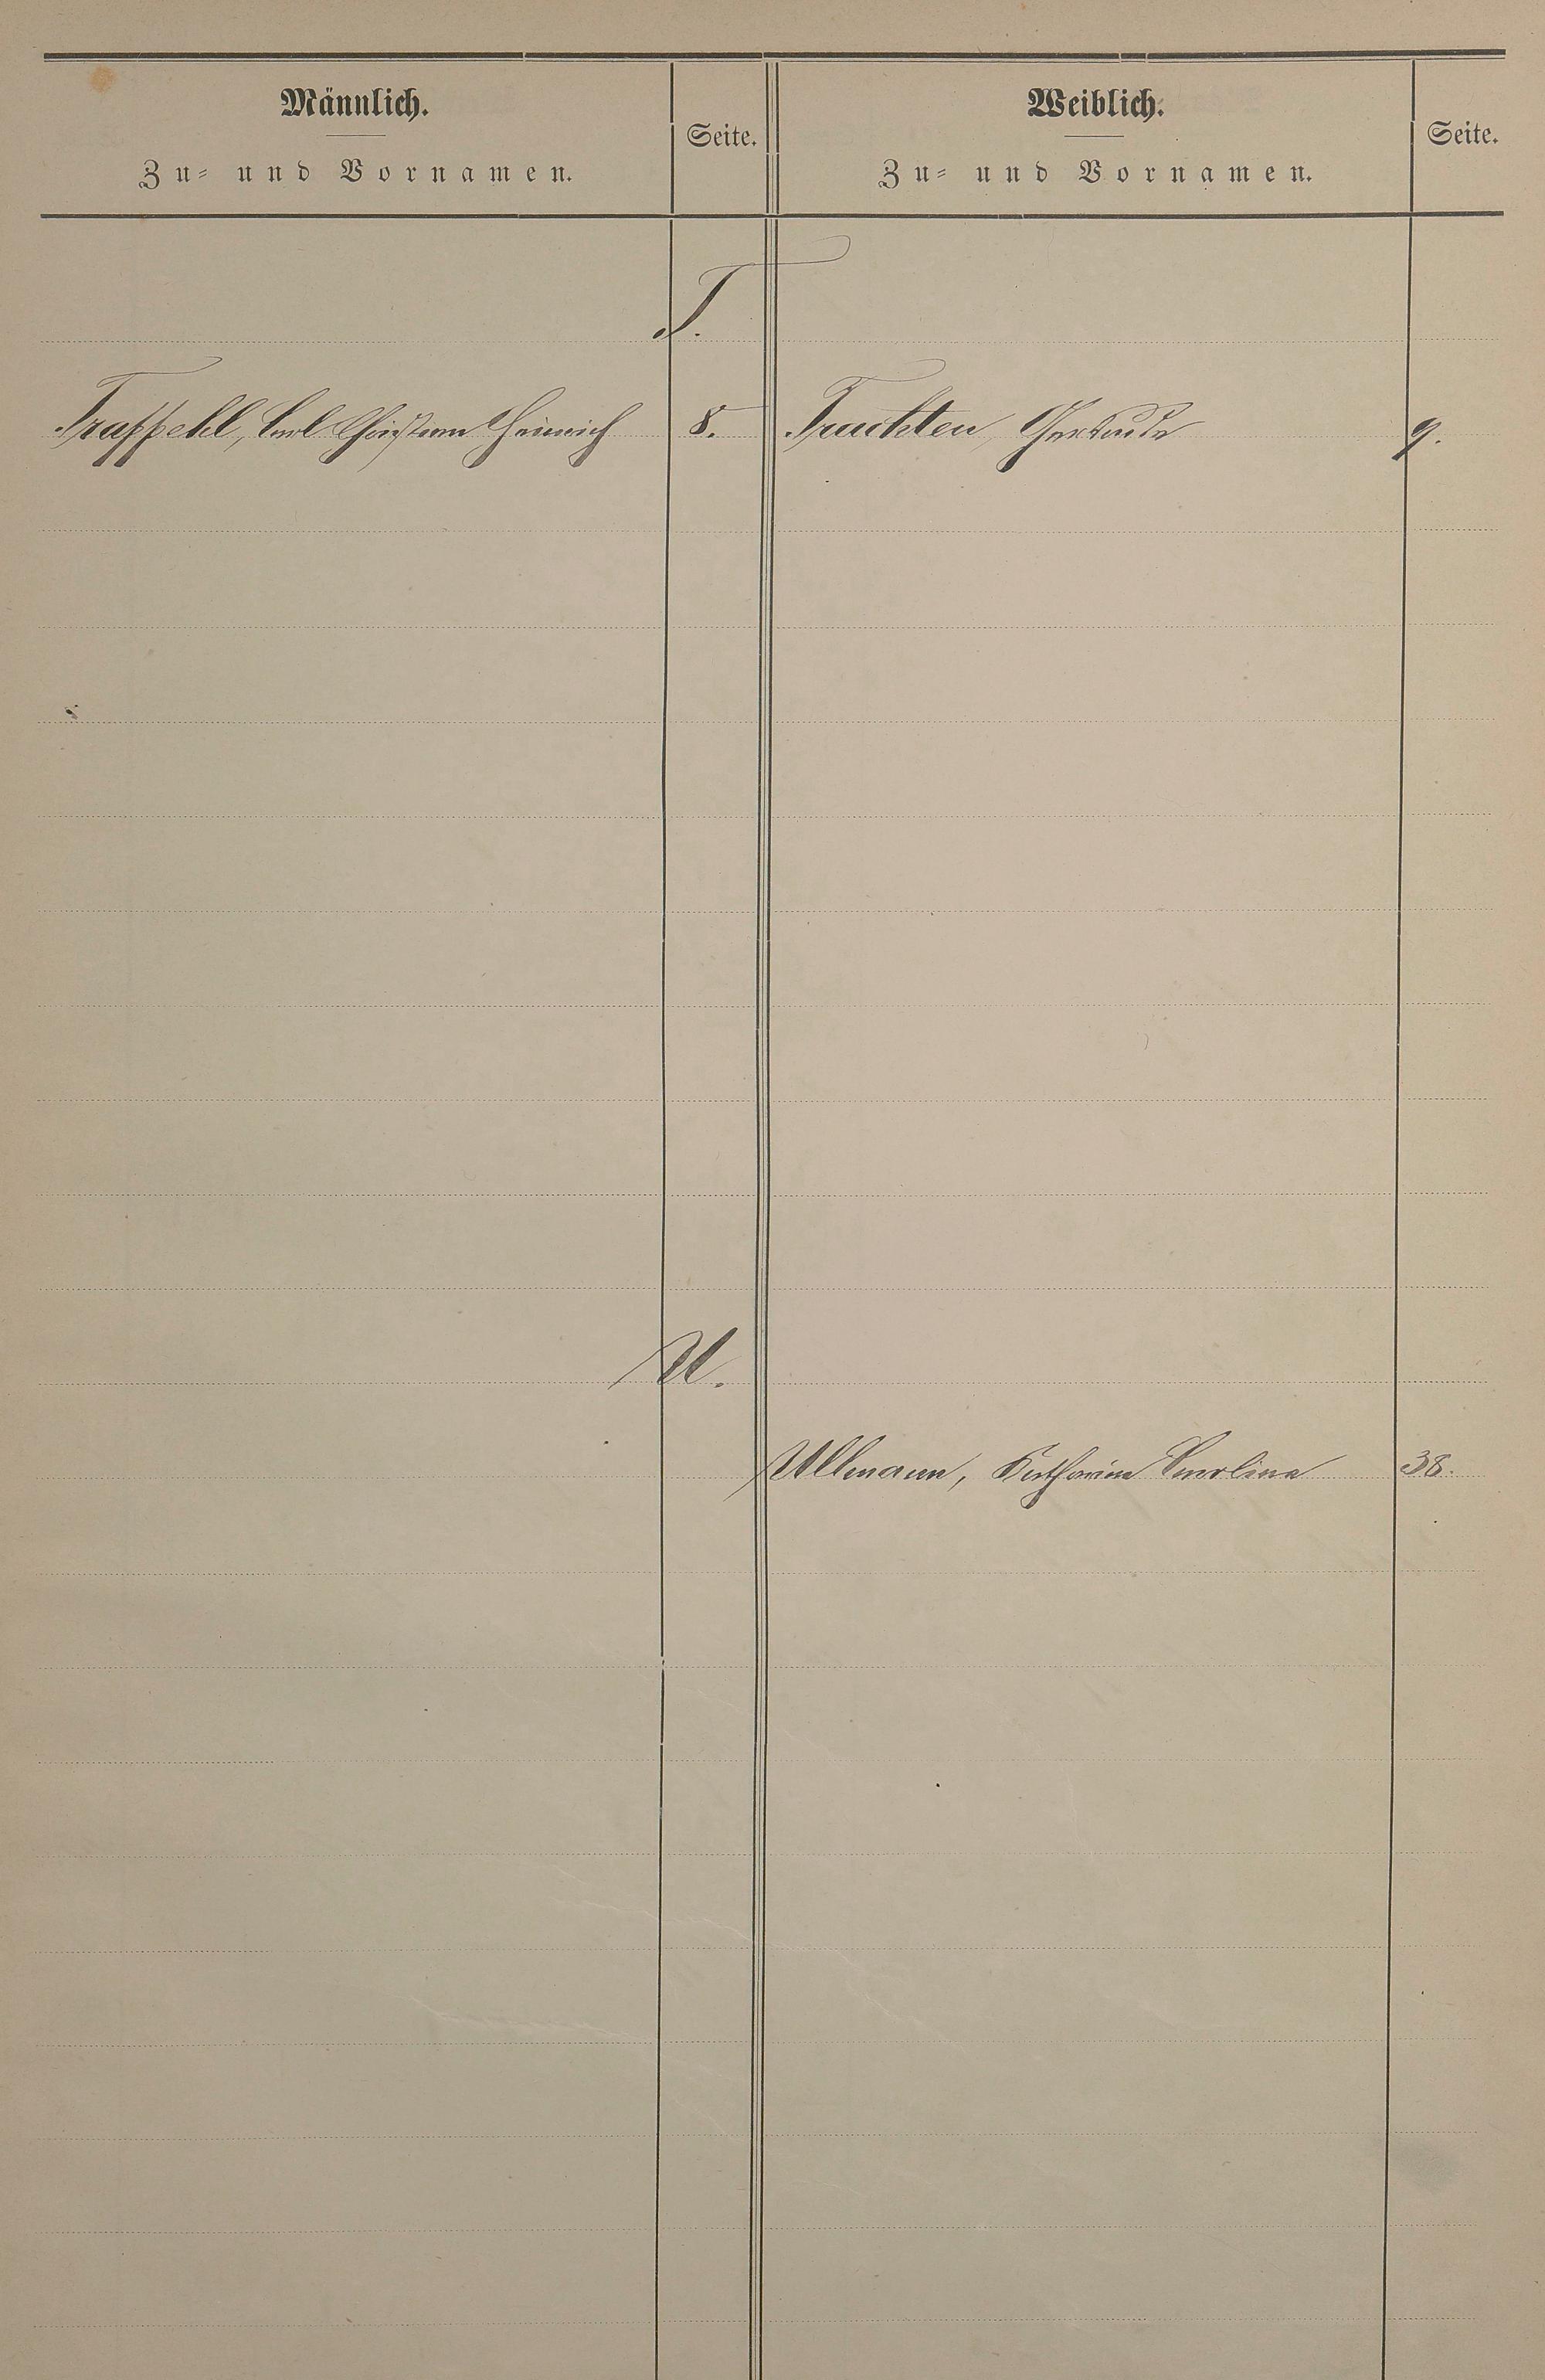 Männlich.
Zu- und Vornamen.
Seite.
Weiblich.
Zu- und Vornamen.
Seite.
T.
Trappehl, Carl Christian Heinrich 8.
Truchten, Gertrude 9.
U.
Ullmann, Katharina Carolina 38.